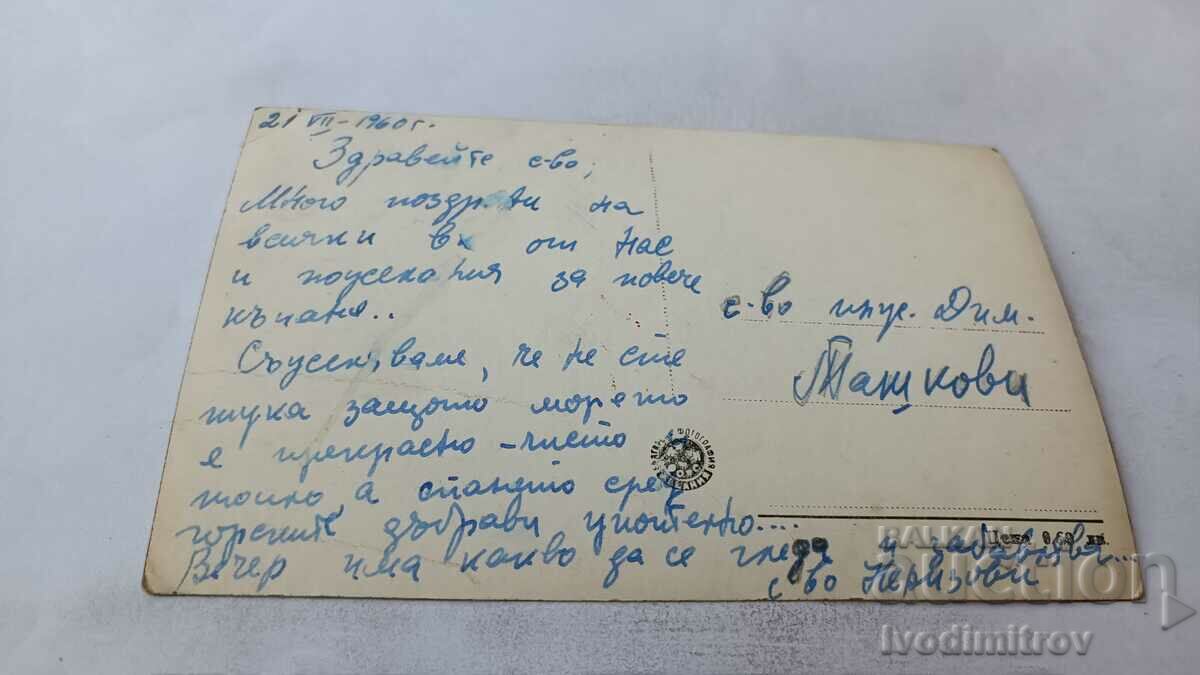 21 VII - 1960 г.
Здравейте с-во,
Много поздрави на
всички от нас
и пожелания за повече
къпане..
Съжеляваме, че не сте
тука защото морето
е прекрасно - чисто
топло, а спането сред
горските дъбрави упоително....
Вечер има какво да се гледа и забавлява...
с-во
с-во инж. Дим.
Ташкови
БЪЛГАРСКА ФОТОГРАФИЯ
Цена 0,60 лв.
BALKAN
auction
Ivodimitrov